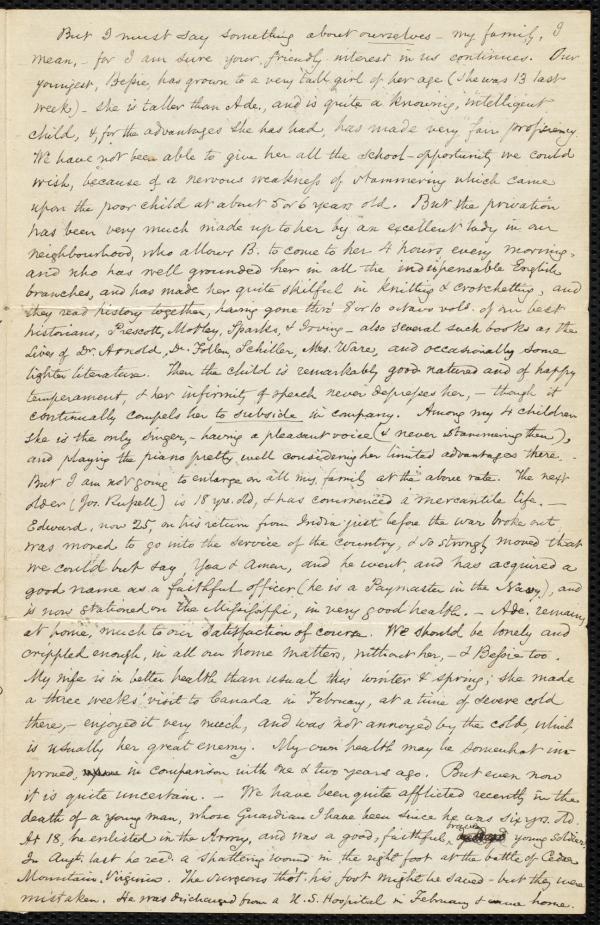 But I must say something about ourselves – my family, I
mean, – for I am sure your friendly interest in us continues. Our
youngest, Bessie, has grown to a very tall girl of her age (she was 13 last
week) – she is taller than Ade., and is quite a knowing, intelligent
child, &, for the advantages she has had, has made very fair proficiency.
We have not been able to give her all the school-opportunity we could
wish, because of a nervous weakness of stammering which came
upon the poor child at about 5 or 6 years old. But the privation
has been very much made up to her by an excellent lady in our
neighbourhood, who allows B. to come to her 4 hours every morning,
and who has well grounded her in all the indispensable English
branches, and has made her quite skilful in knitting & crotchetting, and
they read history together, having gone thro' 8 or 10 octavo vols. of our best
historians, Prescott, Motley, Sparks, & Irving – also several such books as the
Lives of Dr. Arnold, Dr. Follen, Schiller, Mrs. Ware, and occasionally some
lighter literature. Then the child is remarkably good natured and of happy
temperament, & her infirmity of speech never depresses her, – though it
continually compels her to subside in company. Among my 4 children
she is the only singer, – having a pleasant voice (& never stammering then),
and playing the piano pretty well considering her limited advantages there. –
But I am not going to enlarge on all my family at the above rate. The next
older (Jos. Russell) is 18 yrs. old, & has commenced a mercantile life. –
Edward, now 25, on his return from India just before the war broke out,
was moved to go into the service of the country, & so strongly moved that
we could but say Yea & Amen, and he went, and has acquired a
good name as a faithful officer (he is a Paymaster in the Navy), and
is now stationed on the Mississippi, in very good health. – Ade. remains
at home, much to our satisfaction of course. We should be lonely and
crippled enough, in all our home matters, without her, – & Bessie too.
My wife is in better health than usual this winter & spring; she made
a three weeks' visit to Canada in February, at a time of severe cold
there, – enjoyed it very much, and was not annoyed by the cold, which
is usually her great enemy. My own health may be somewhat im-
proved, in comparison with one & two years ago. But even now
it is quite uncertain. – We have been quite afflicted recently in the
death of a young man, whose Guardian I have been since he was six yrs. old.
At 18, he enlisted in the Army, and was a good, faithful, brave young soldier.
In Augt. last he recd. a shattering wound in the right foot at the battle of Cedar
Mountain, Virginia. The surgeons thot. his foot might be saved – but they were
mistaken. He was discharged from a U.S. Hospital in February & came home.